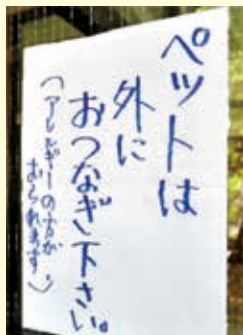 ペットは
外に
おつなぎ下さい。
(アレルギーの方が、
おられます。)